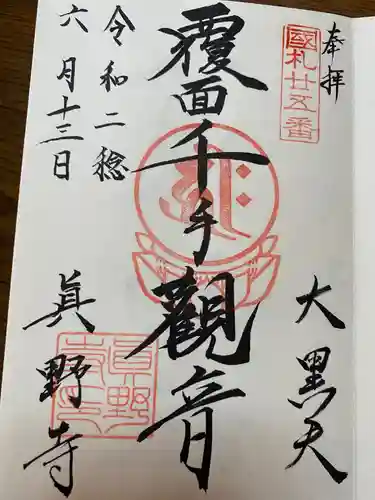 奉拝
國札廿五番
大黒天
覆面千手観音
令和二稔
六月十三日
眞野寺
眞野寺印